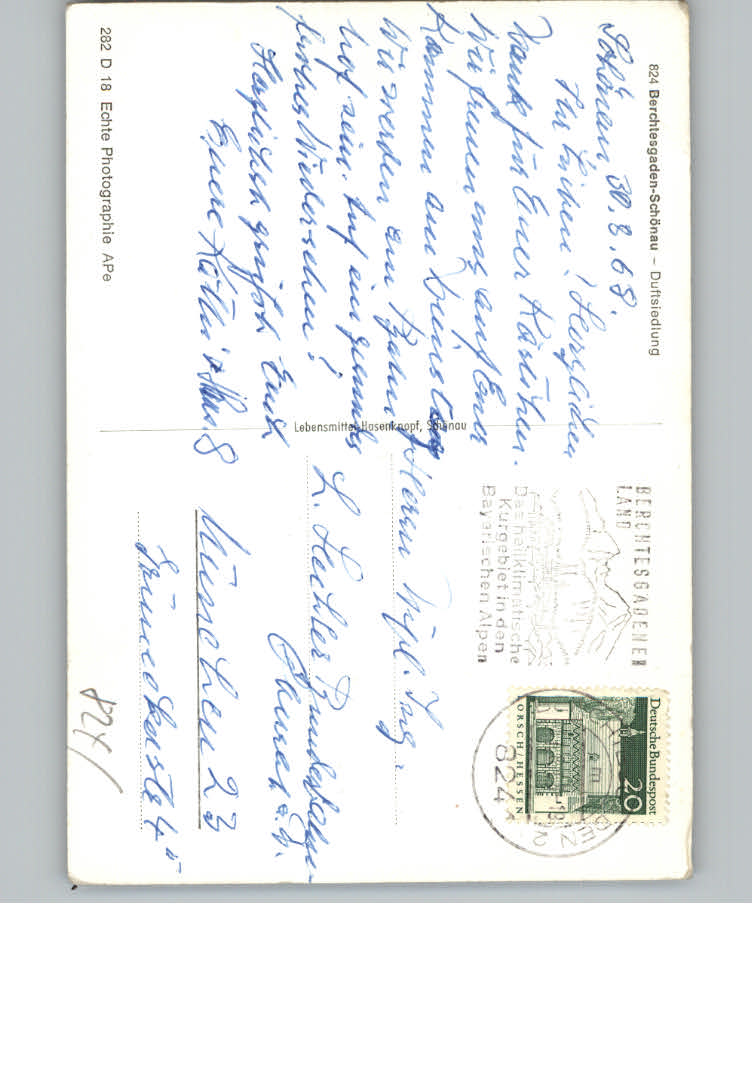 824 Berchtesgaden-Schönau – Duftsiedlung
Schönau 30.8.68.
Ihr Lieben! Herzlichen
Dank für Euer Kärtchen.
Wir freuen uns auf Euer
Kommen am Dienstag
Wir werden am Bahn
hof sein. Auf ein gesundes
frohes Wiedersehen!
Herzlichst grüßt Euch
Eure
282 D 18 Echte Photographie APe
Lebensmittel Hasenknopf, Schönau
BERCHTESGADENER
LAND
Das heilklimatische
Kurgebiet in den
Bayerischen Alpen
Deutsche Bundespost
20
LORSCH/HESSEN
824
Herrn Dipl. Ing.
L.
Bundesbahn-
München 23
824